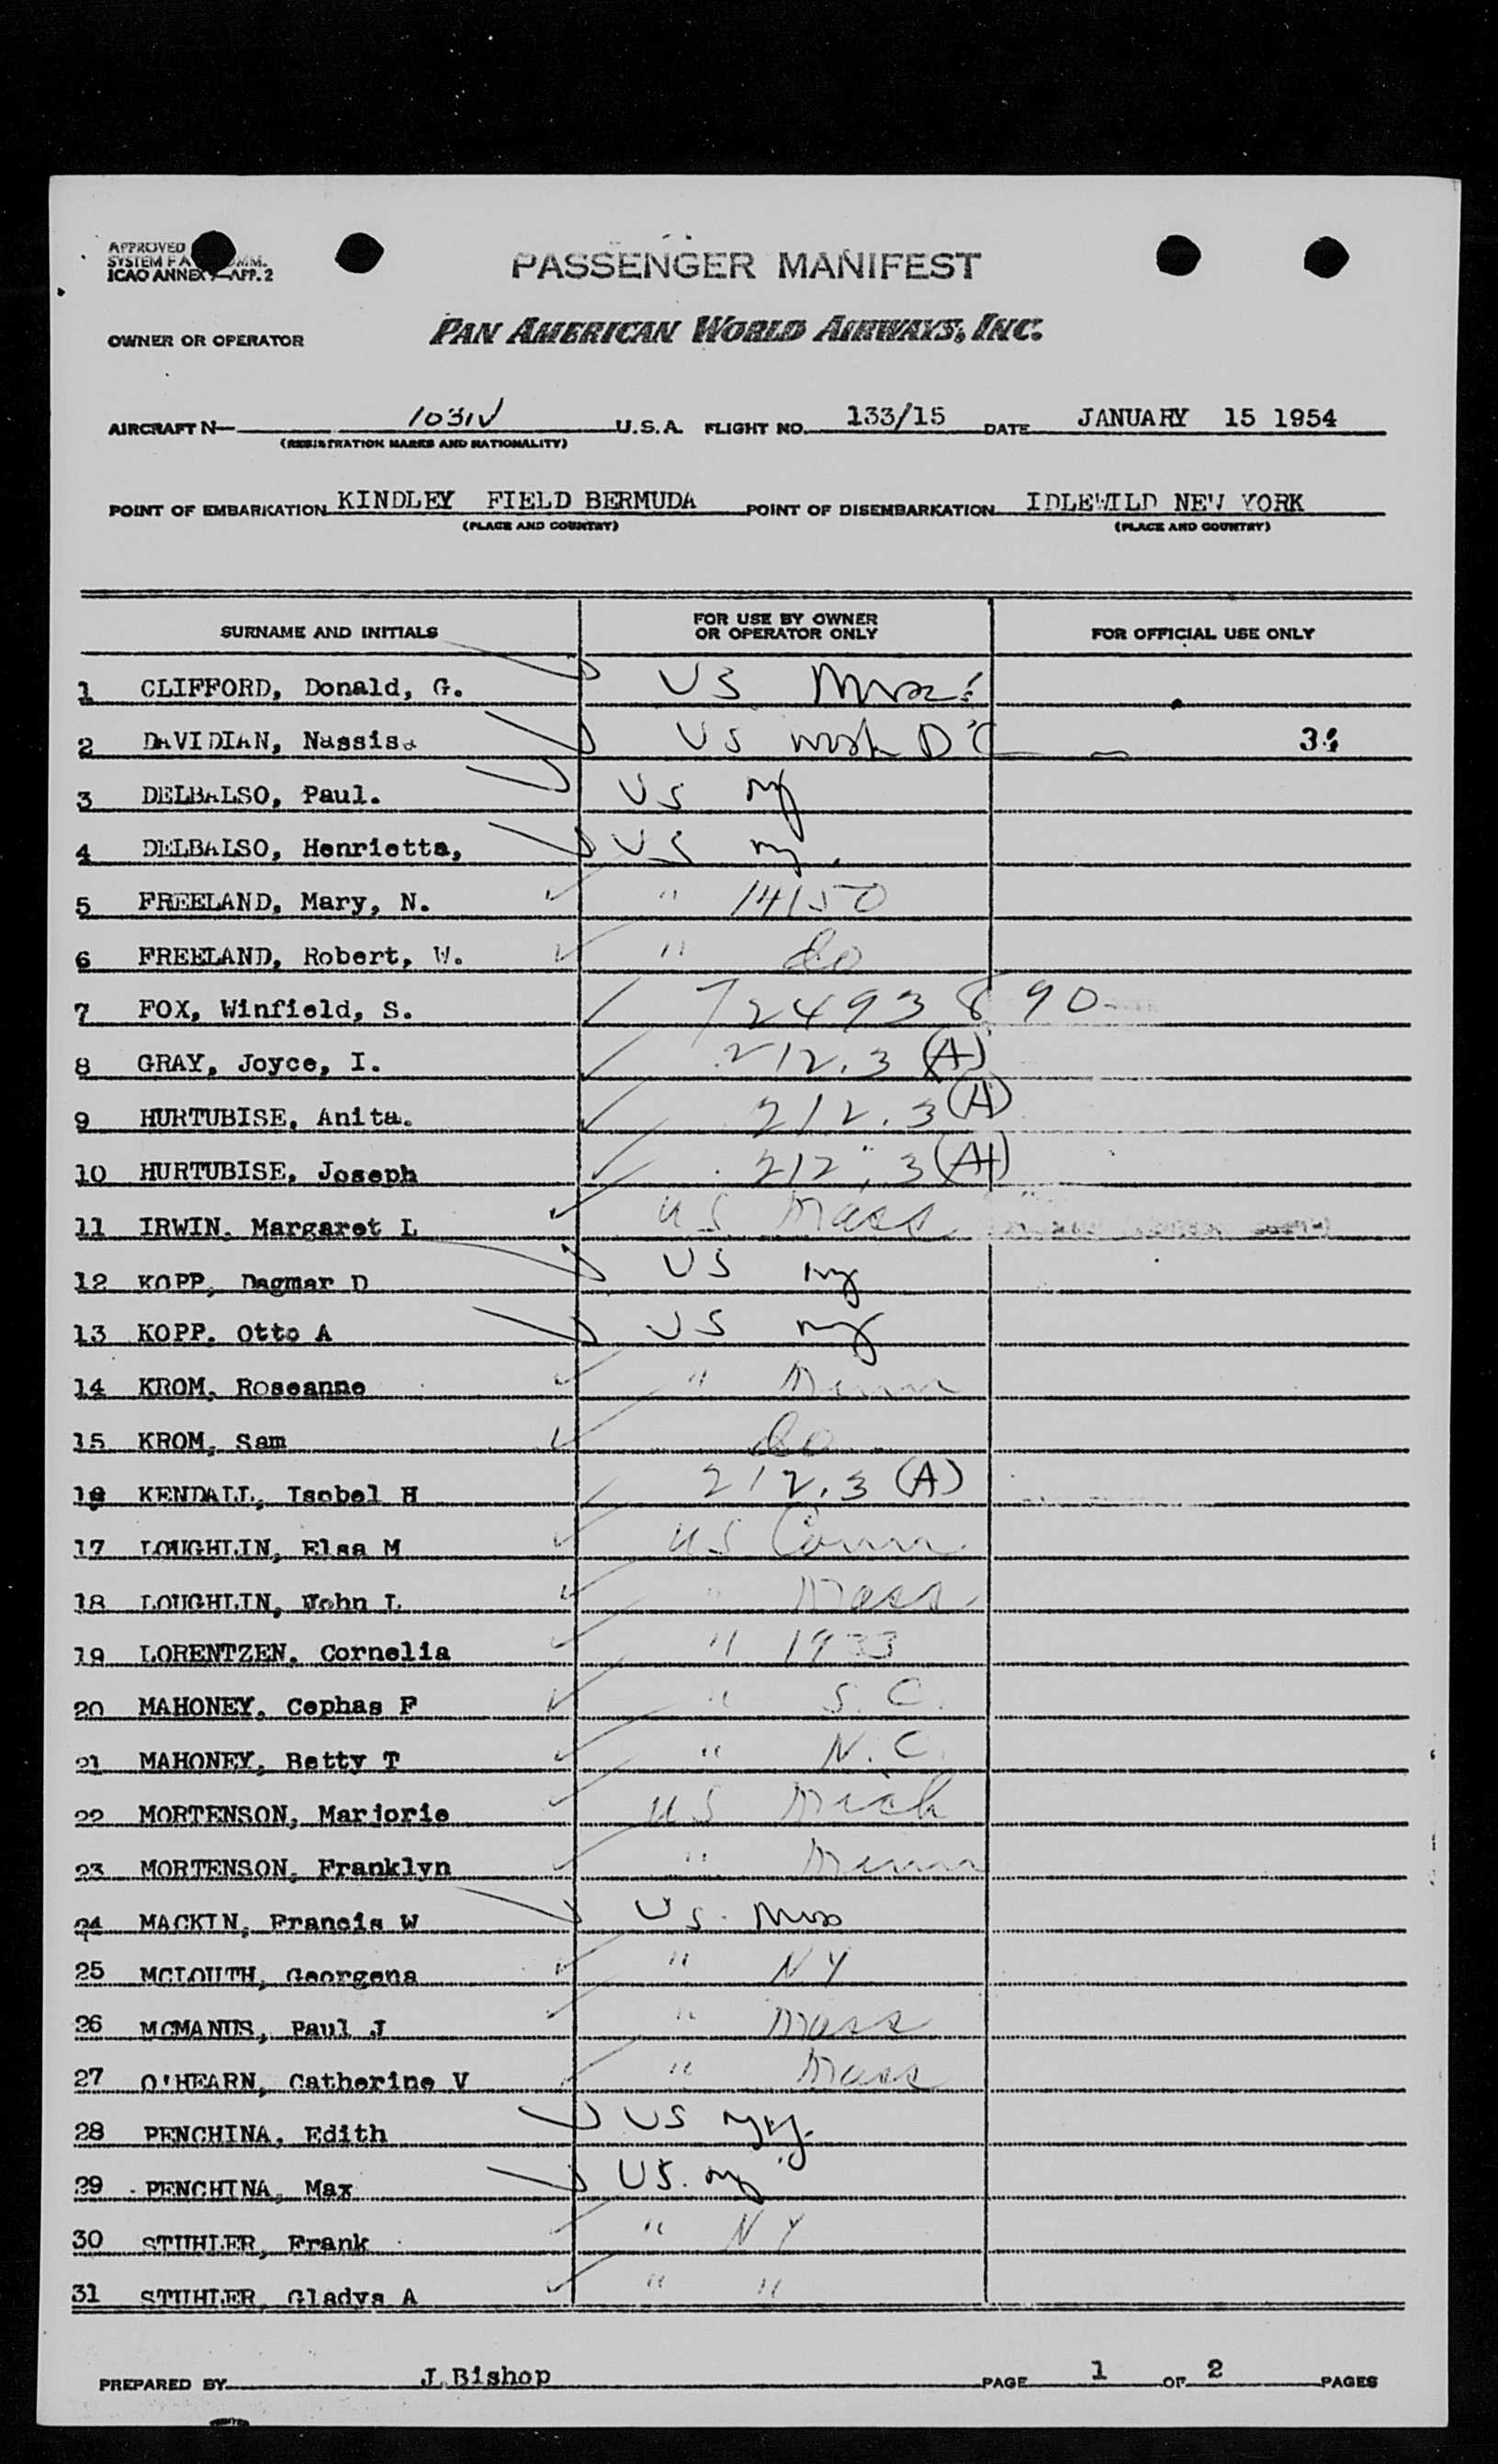 APPROVED
SYSTEM FA MM.
ICAO ANNEX 9—APP. 2
PASSENGER MANIFEST
OWNER OR OPERATOR PAN AMERICAN WORLD AIRWAYS, INC.
AIRCRAFT N— 1031V U.S.A. FLIGHT NO. 133/15 DATE JANUARY 15 1954
(REGISTRATION MARKS AND NATIONALITY)
POINT OF EMBARKATION KINDLEY FIELD BERMUDA POINT OF DISEMBARKATION IDLEWILD NEW YORK
(PLACE AND COUNTRY) (PLACE AND COUNTRY)
SURNAME AND INITIALS FOR USE BY OWNER OR OPERATOR ONLY FOR OFFICIAL USE ONLY
1 CLIFFORD, Donald, G. US Mass
2 DAVIDIAN, Nassis. US Wash DC 34
3 DELBALSO, Paul. US NY
4 DELBALSO, Henrietta, US NY.
5 FREELAND, Mary, N. " 14150
6 FREELAND, Robert, W. " do
7 FOX, Winfield, S. 72493890
8 GRAY, Joyce, I. 212.3 (A)
9 HURTUBISE, Anita. 212.3 (A)
10 HURTUBISE, Joseph 212.3 (A)
11 IRWIN. Margaret L US Mass
12 KOPP, Dagmar D US NY
13 KOPP. Otto A US NY
14 KROM, Roseanne " Minn
15 KROM, Sam do
16 KENDALL, Isobel H 212.3 (A)
17 LOUGHLIN, Elsa M US Conn
18 LOUGHLIN, John L " Mass
19 LORENTZEN. Cornelia " 1933
20 MAHONEY. Cephas F " S.C.
21 MAHONEY, Betty T " N.C.
22 MORTENSON, Marjorie US Mich
23 MORTENSON, Franklyn " Minn
24 MACKIN, Francis W US. Mass
25 MCLOUTH, Georgena " NY
26 MCMANUS, Paul J " Mass
27 O'HEARN, Catherine V " Mass
28 PENCHINA, Edith US NY.
29 PENCHINA, Max US. NY
30 STUHLER, Frank " NY
31 STUHLER, Gladys A " "
PREPARED BY J.Bishop PAGE 1 OF 2 PAGES